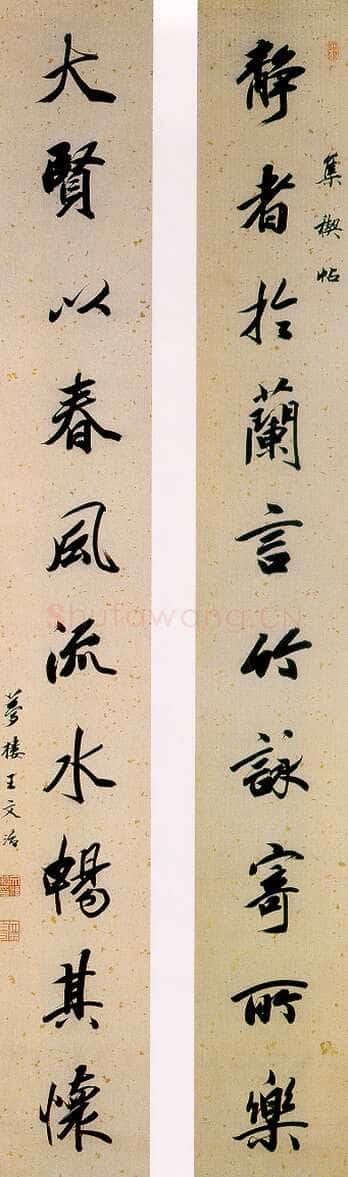 集禊帖
靜者於蘭言竹詠寄所樂
大賢以春風流水暢其懷
夢樓王文治
Shufawang.CN